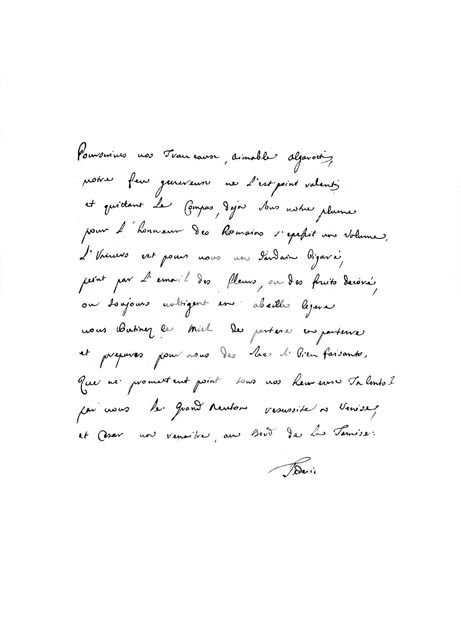 Poursuives vos Travaux, aimable algarotti,
votre feu genereux ne s'est point ralenti
et quittant Le Compas, deja sous votre plume
pour L'honneur des Romains s'epaissit un volume.
L'Univers est pour vous un Jardin Bigaré,
peint par L'email des fleurs, ou des fruits decoré,
ou toujours voltigent en abeille legere
vous Butinez le miel de parterre en parterre
et prepares pour nous des sucs si bien faisants.
Que ne promettent point tous vos heureux Talents?
par vous le grand Neuton resussite a Venise,
et Cesar va renaitre, au Bord de La Tamise.
Federic